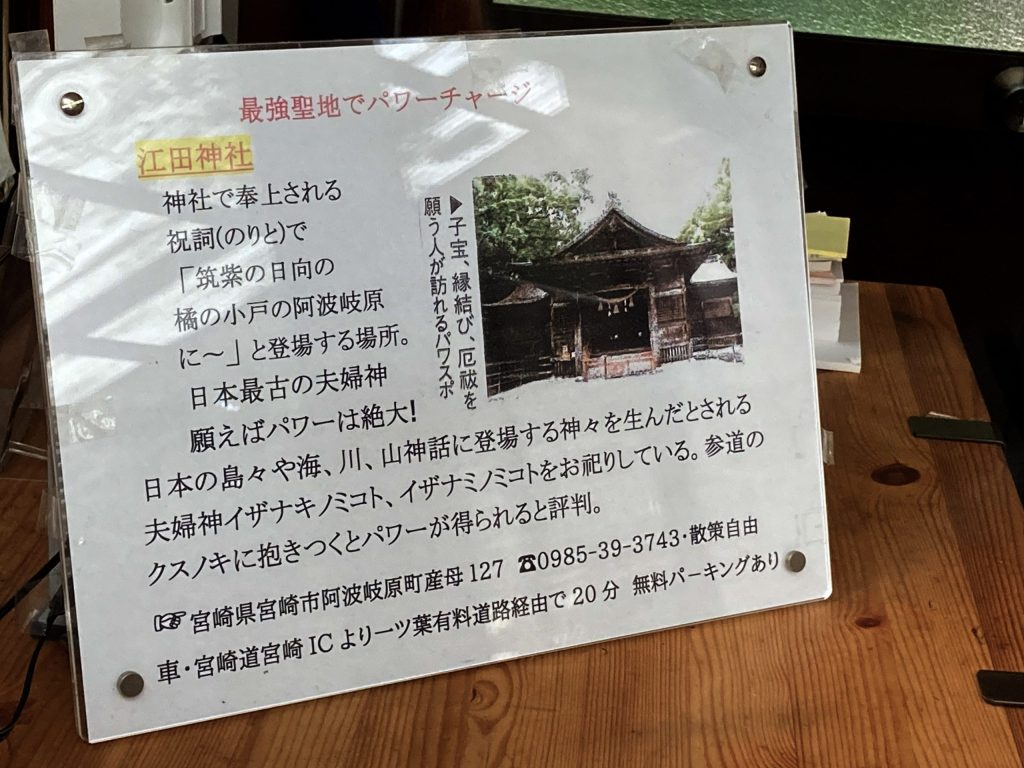 最強聖地でパワーチャージ
江田神社
神社で奉上される
祝詞(のりと)で
「筑紫の日向の
橘の小戸の阿波岐原
に～」と登場する場所。
日本最古の夫婦神
願えばパワーは絶大!
▶子宝、縁結び、厄祓を
願う人が訪れるパワスポ
日本の島々や海、川、山神話に登場する神々を生んだとされる
夫婦神イザナキノミコト、イザナミノミコトをお祀りしている。参道の
クスノキに抱きつくとパワーが得られると評判。
☞宮崎県宮崎市阿波岐原町産母127 ☎0985-39-3743・散策自由
車・宮崎道宮崎ICより一ツ葉有料道路経由で20分 無料パーキングあり